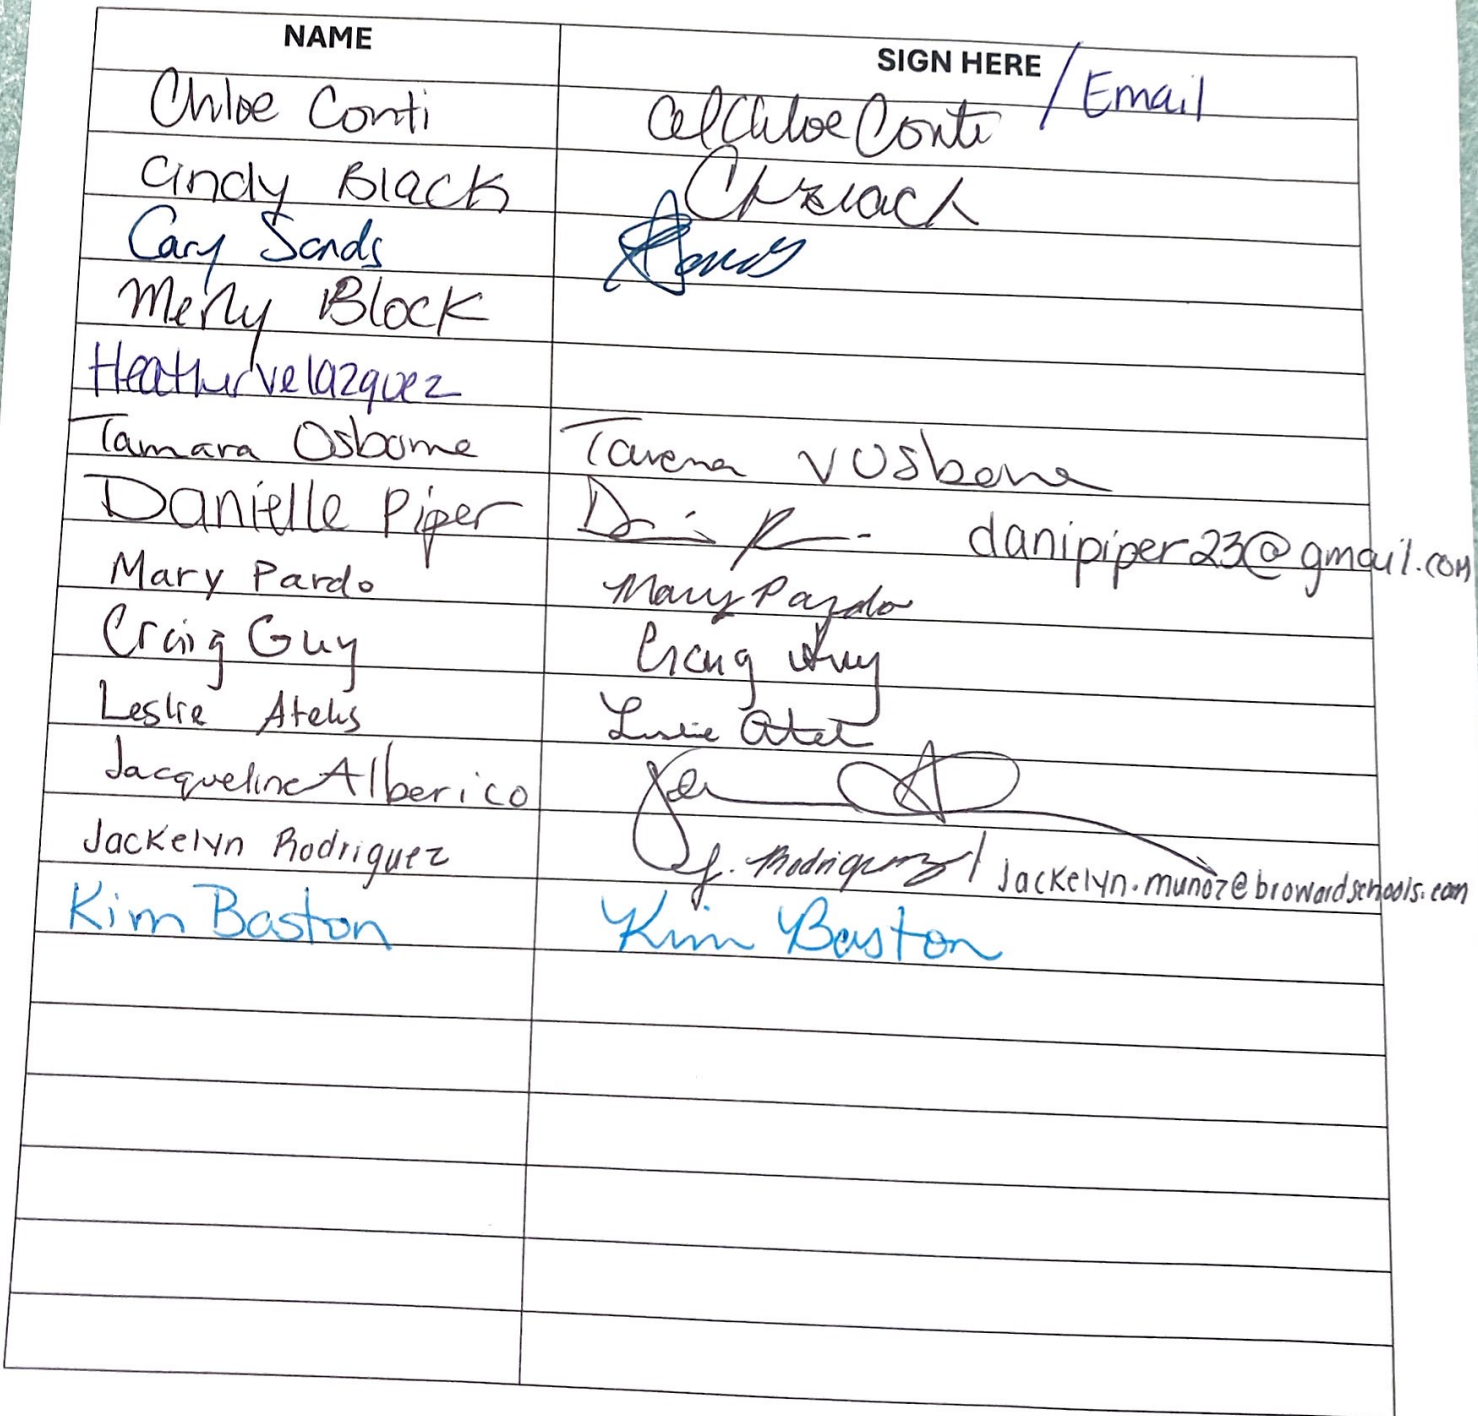 NAME SIGN HERE / Email
Chloe Conti Chloe Conti
Cindy Black
Cary Sands
Merly Block
Heather Velazquez
Tamara Osborne V Osborne
Danielle Piper danipiper23@gmail.com
Mary Pardo Mary Pardo
Craig Guy Craig Guy
Leslie Leslie
Jacqueline Alberico
Jackelyn Rodriguez J. Rodriguez / Jackelyn.munoz@browardschools.com
Kim Baston Kim Baston